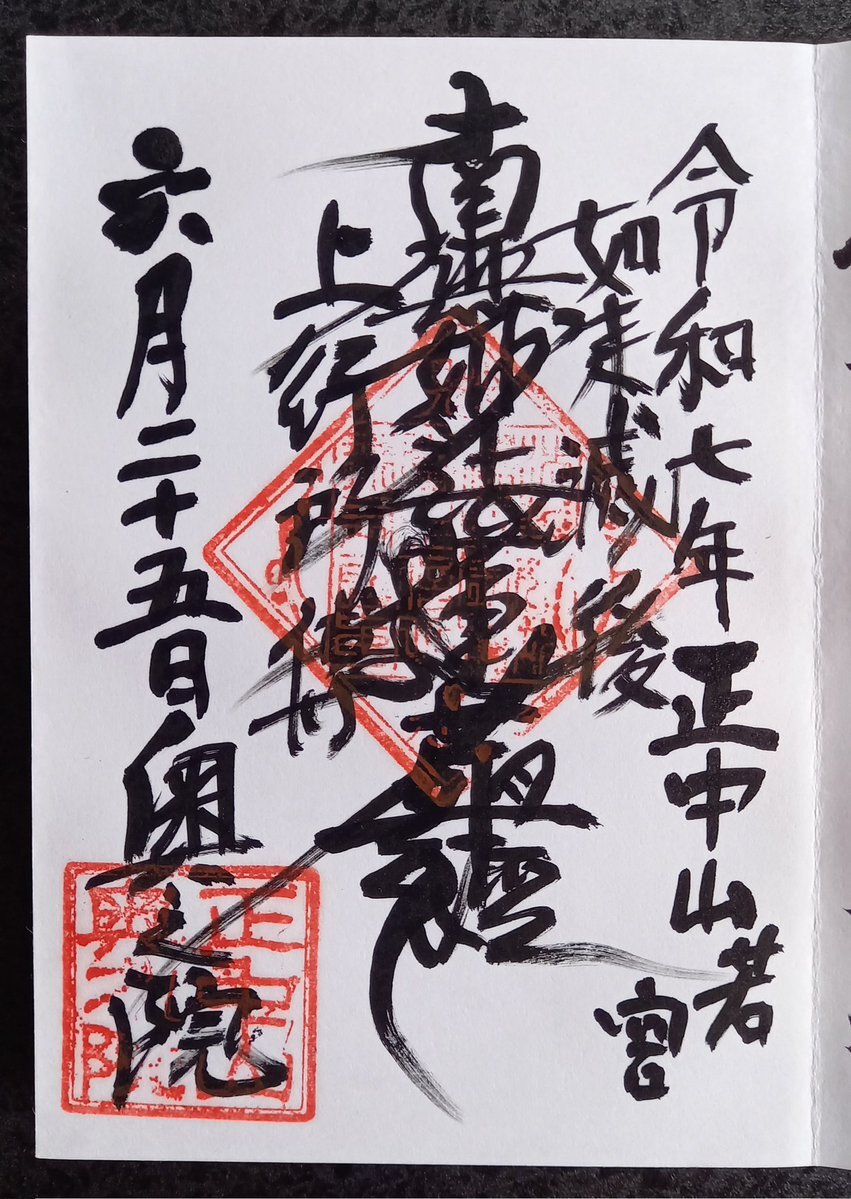 令和七年 正中山 若宮
如来滅後
南無妙法蓮華経
上行所伝
六月二十五日 奥之院
正中山
奥之院